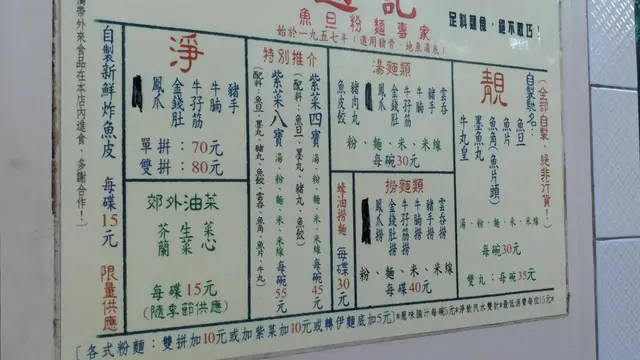 魚旦粉麵專家
始於一九五七年(選用豬骨、地魚湯底)
足料麵食，絕不取巧！
靚
(全部自製，絕非行貨！)
自製馳名：
魚旦
魚片
魚角(魚片頭)
墨魚丸
牛丸
湯、粉、麵、米、米線
每碗30元
雙丸：每碗35元
湯麵類
雲吞
豬手
牛腩
牛孖筋
金錢肚
鳳爪
豬肉丸
魚皮餃
粉、麵、米、米線
每碗30元
撈麵類
雲吞撈
豬手撈
牛腩撈
牛孖筋撈
金錢肚撈
鳳爪撈
粉、麵、米、米線
每碟40元
蠔油撈麵 每碟30元
特別推介
紫菜四寶 湯、粉、麵、米、米線 每碗45元
(配料：魚旦、墨丸、豬丸、魚餃)
紫菜八寶 湯、粉、麵、米、米線 每碗55元
(配料：魚旦、墨丸、豬丸、魚餃、雲吞、魚角、魚片、牛丸)
淨
豬手
牛腩
牛孖筋
金錢肚
鳳爪
單拼：70元
雙拼：80元
郊外油菜
菜心
生菜
芥蘭
每碟15元
(隨季節供應)
自製新鮮炸魚皮 每碟15元 限量供應
攜帶外來食品在本店內進食，多謝合作！
[各式粉麵：雙拼加10元或加紫菜加10元或轉伊麵底加5元]